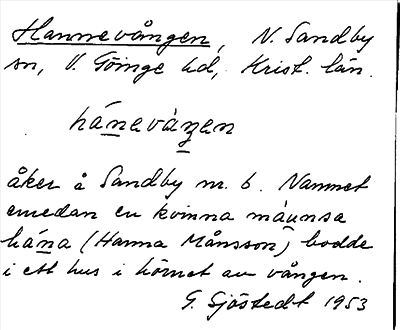 Hannevången, N. Sandby
sn, V. Göinge hd, Krist. län.
hánevàṉen
åker å Sandby nr. 6. Namnet
emedan en kvinna máunsa
háṉa (Hanna Månsson) bodde
i ett hus i hörnet av vången.
G. Sjöstedt 1953